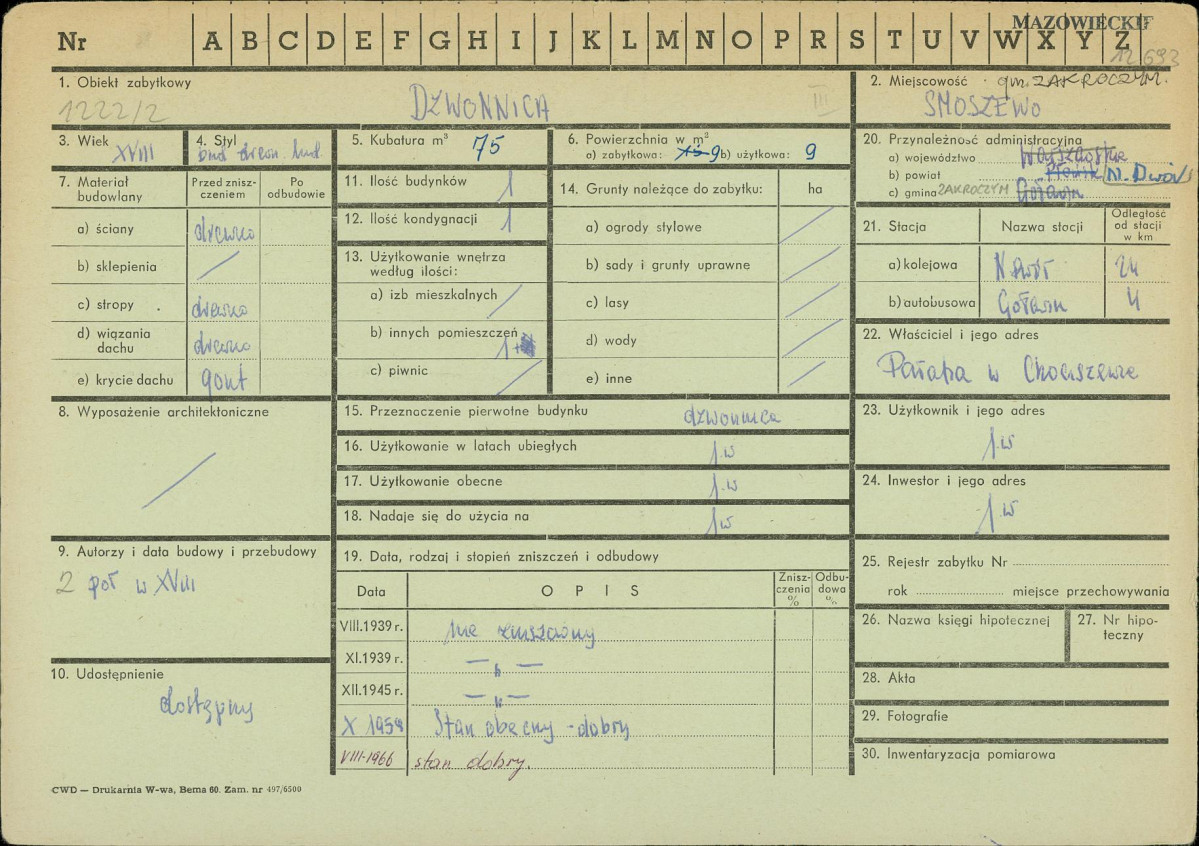 MAZOWIECKIE
Nr A B C D E F G H I J K L M N O P R S T U V W X Y Z
12693
1. Obiekt zabytkowy
1222/2
DZWONNICA
III
2. Miejscowość gm. ZAKROCZYM.
SMOSZEWO
3. Wiek
XVIII
4. Styl
bud. drewn. lud.
5. Kubatura m³ 75
6. Powierzchnia w m²
a) zabytkowa: 9 b) użytkowa: 9
7. Materiał budowlany
Przed znisz-
czeniem
Po
odbudowie
a) ściany drewno
b) sklepienia /
c) stropy drewno
d) wiązania
dachu drewno
e) krycie dachu gont
8. Wyposażenie architektoniczne
/
9. Autorzy i data budowy i przebudowy
2 poł w XVIII
10. Udostępnienie
dostępny
11. Ilość budynków 1
12. Ilość kondygnacji 1
13. Użytkowanie wnętrza
według ilości:
a) izb mieszkalnych /
b) innych pomieszczeń 1
c) piwnic /
14. Grunty należące do zabytku: ha
a) ogrody stylowe /
b) sady i grunty uprawne /
c) lasy /
d) wody /
e) inne /
15. Przeznaczenie pierwotne budynku dzwonnica
16. Użytkowanie w latach ubiegłych j.w
17. Użytkowanie obecne j.w
18. Nadaje się do użycia na j.w
19. Data, rodzaj i stopień zniszczeń i odbudowy
Data
O P I S
Znisz-
czenia
%
Odbu-
dowa
%
VIII.1939 r. nie zniszczony
XI.1939 r. — " —
XII.1945 r. — " —
X 1958 Stan obecny - dobry
VIII-1966 stan dobry.
20. Przynależność administracyjna
a) województwo Warszawskie
b) powiat Płońsk N. Dwór
c) gmina ZAKROCZYM
21. Stacja
Nazwa stacji
Odległość
od stacji
w km
a) kolejowa N. Dwór 24
b) autobusowa 4
22. Właściciel i jego adres
Parafia w Chociszewie
23. Użytkownik i jego adres
j.w
24. Inwestor i jego adres
j.w
25. Rejestr zabytku Nr
rok miejsce przechowywania
26. Nazwa księgi hipotecznej
27. Nr hipo-
teczny
28. Akta
29. Fotografie
30. Inwentaryzacja pomiarowa
CWD — Drukarnia W-wa, Bema 60. Zam. nr 497/6500